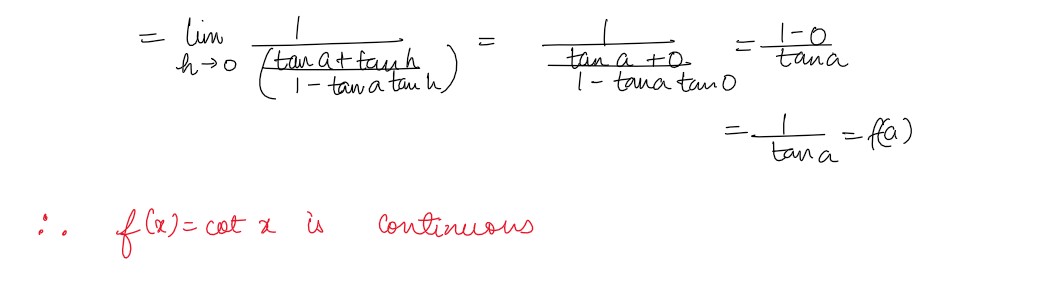 = lim h→0 1/((tan a + tan h)/(1 - tan a tan h)) = 1/((tan a + 0)/(1 - tan a tan 0)) = (1-0)/(tan a)
= 1/(tan a) = f(a)
∴ f(x) = cot x is continuous